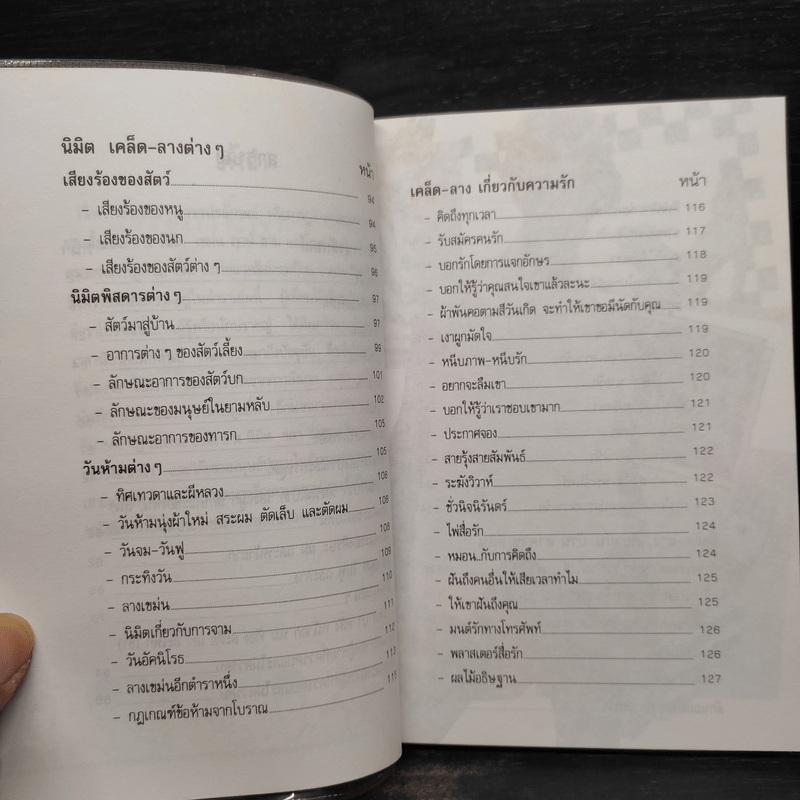 นิมิต เคล็ด-ลางต่าง ๆ
หน้า
เสียงร้องของสัตว์ 94
- เสียงร้องของหนู 94
- เสียงร้องของนก 95
- เสียงร้องของสัตว์ต่าง ๆ 96
นิมิตพิสดารต่าง ๆ 97
- สัตว์มาสู่บ้าน 97
- อาการต่าง ๆ ของสัตว์เลี้ยง 99
- ลักษณะอาการของสัตว์บก 101
- ลักษณะของมนุษย์ในยามหลับ 102
- ลักษณะอาการของทารก 105
วันห้ามต่าง ๆ 105
- ทิศเทวดาและผีหลวง 106
- วันห้ามนุ่งผ้าใหม่ สระผม ตัดเล็บ และตัดผม 106
- วันจม-วันฟู 108
- กระทิงวัน 109
- ลางเขม่น 110
- นิมิตเกี่ยวกับการจาม 111
- วันอัคนิโรธ 112
- ลางเขม่นอีกตำราหนึ่ง 113
- กฎเกณฑ์ข้อห้ามจากโบราณ
เคล็ด-ลาง เกี่ยวกับความรัก หน้า
- คิดถึงทุกเวลา 116
- รับสมัครคนรัก 117
- บอกรักโดยการแจกอักษร 118
- บอกให้รู้ว่าคุณสนใจเขาแล้วละนะ 119
- ผ้าพันคอตามสีวันเกิด จะทำให้เขาขอมีนัดกับคุณ 119
- เงาผูกมัดใจ 119
- หนีบภาพ-หนีบรัก 120
- อยากจะลืมเขา 120
- บอกให้รู้ว่าเราชอบเขามาก 121
- ประกาศจอง 121
- สายรุ้งสายสัมพันธ์ 122
- ระฆังวิวาห์ 122
- ชั่วนิจนิรันดร์ 123
- ไพ่สื่อรัก 124
- หมอน..กับการคิดถึง 124
- ฝันถึงคนอื่นให้เสียเวลาทำไม 125
- ให้เขาฝันถึงคุณ 125
- มนต์รักทางโทรศัพท์ 126
- พลาสเตอร์สื่อรัก 126
- ผลไม้อธิษฐาน 127